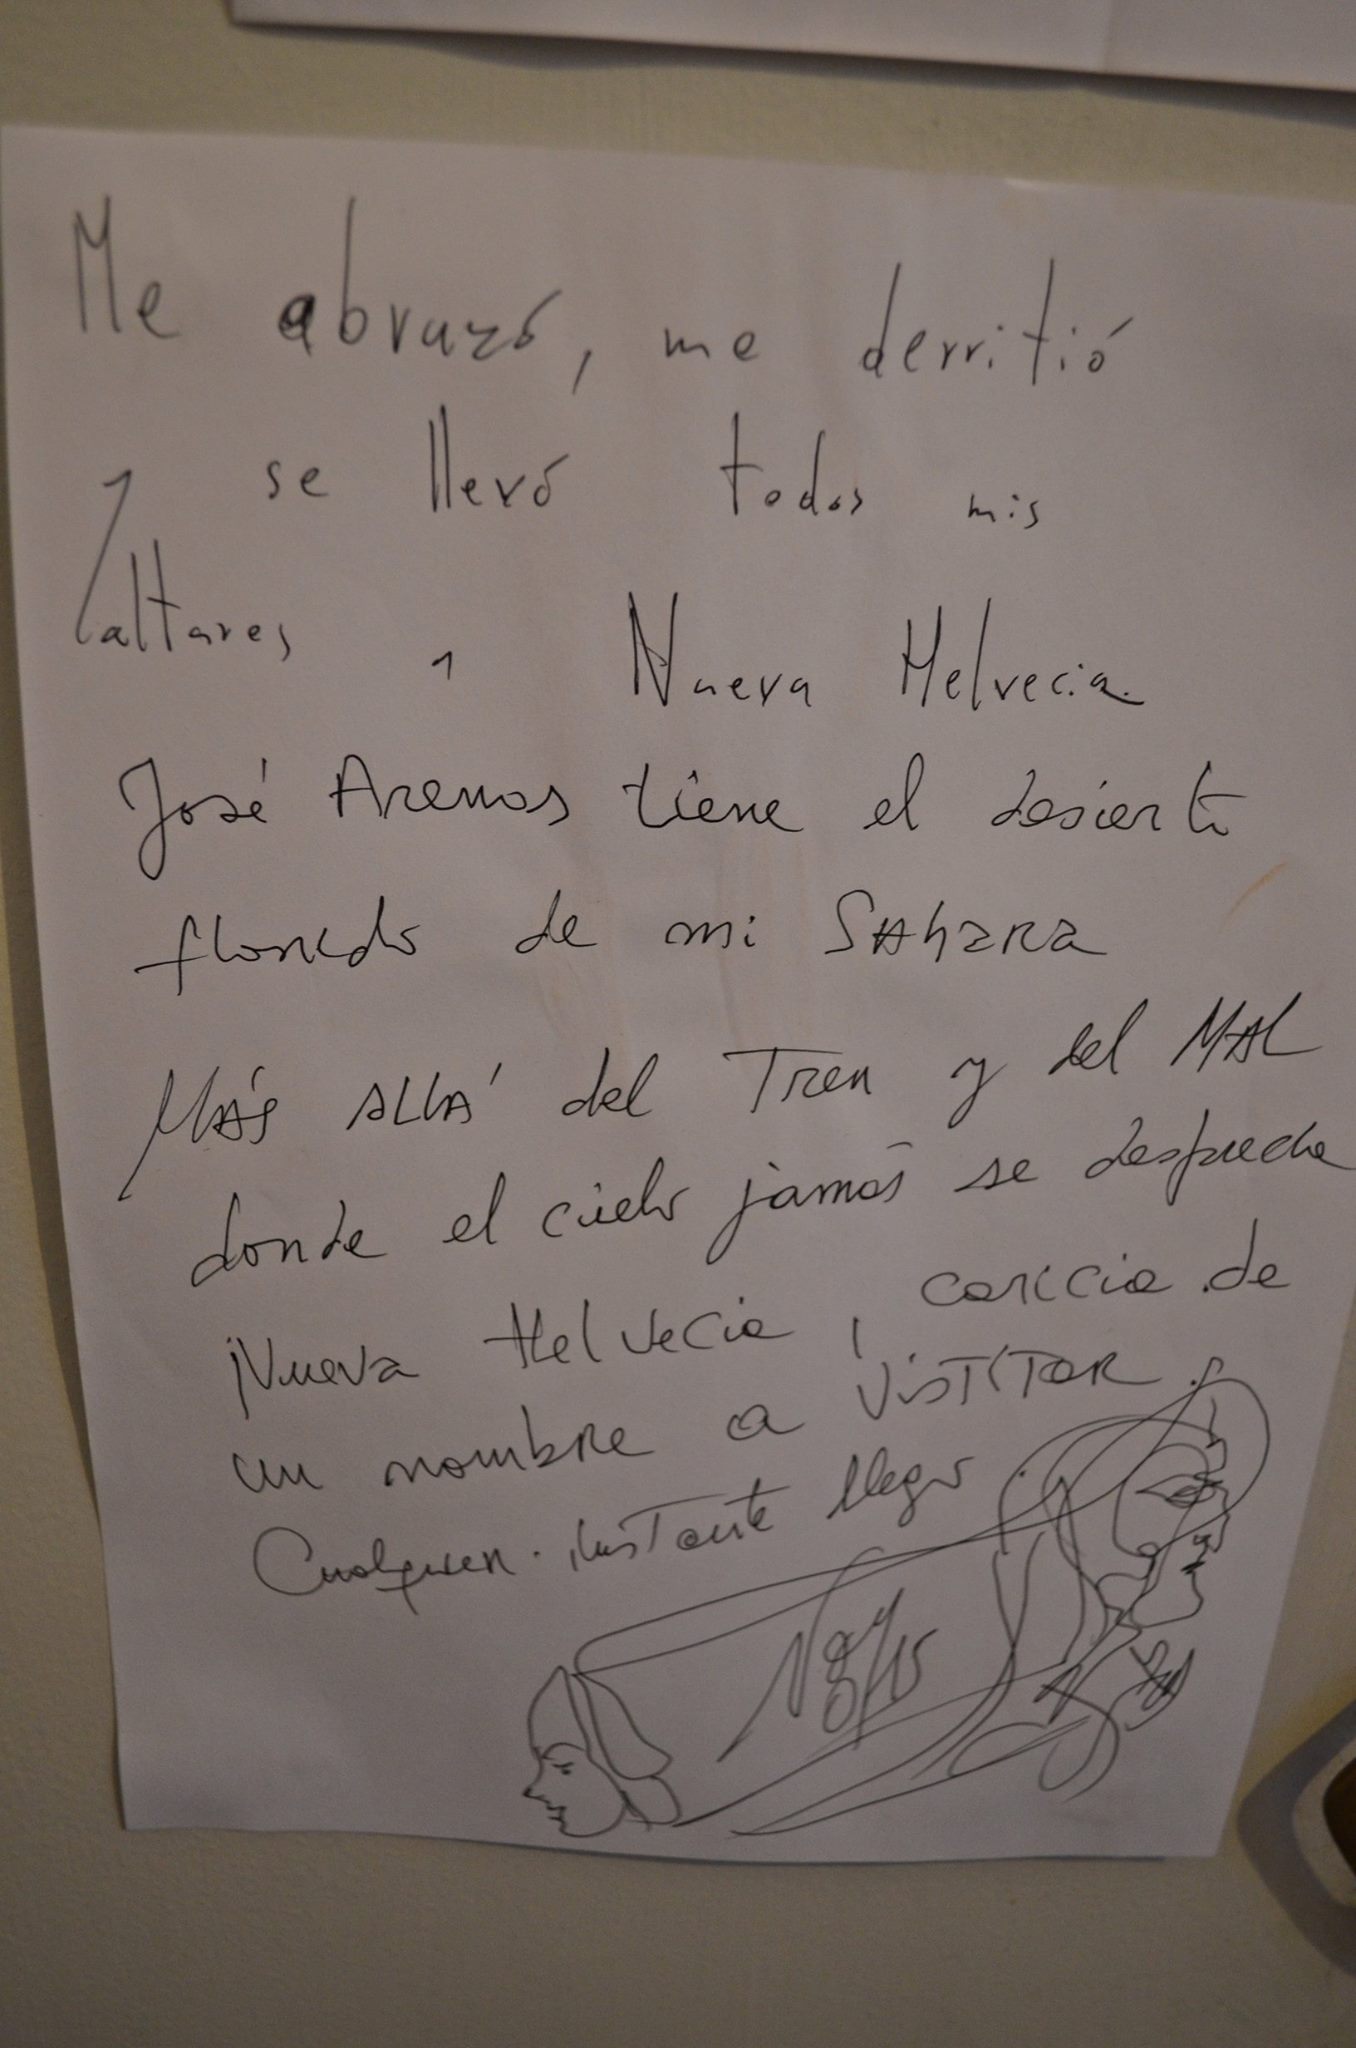 Me abrazó, me derritió
y se llevó todos mis
altares a Nueva Helvecia.
José Arenas tiene el desierto
florido de mi SAhaRa
MÁS ALLÁ del Tren y del MAL
donde el cielo jamás se despide
Nueva Helvecia, caricia de
un nombre a
Cualquier instante llego